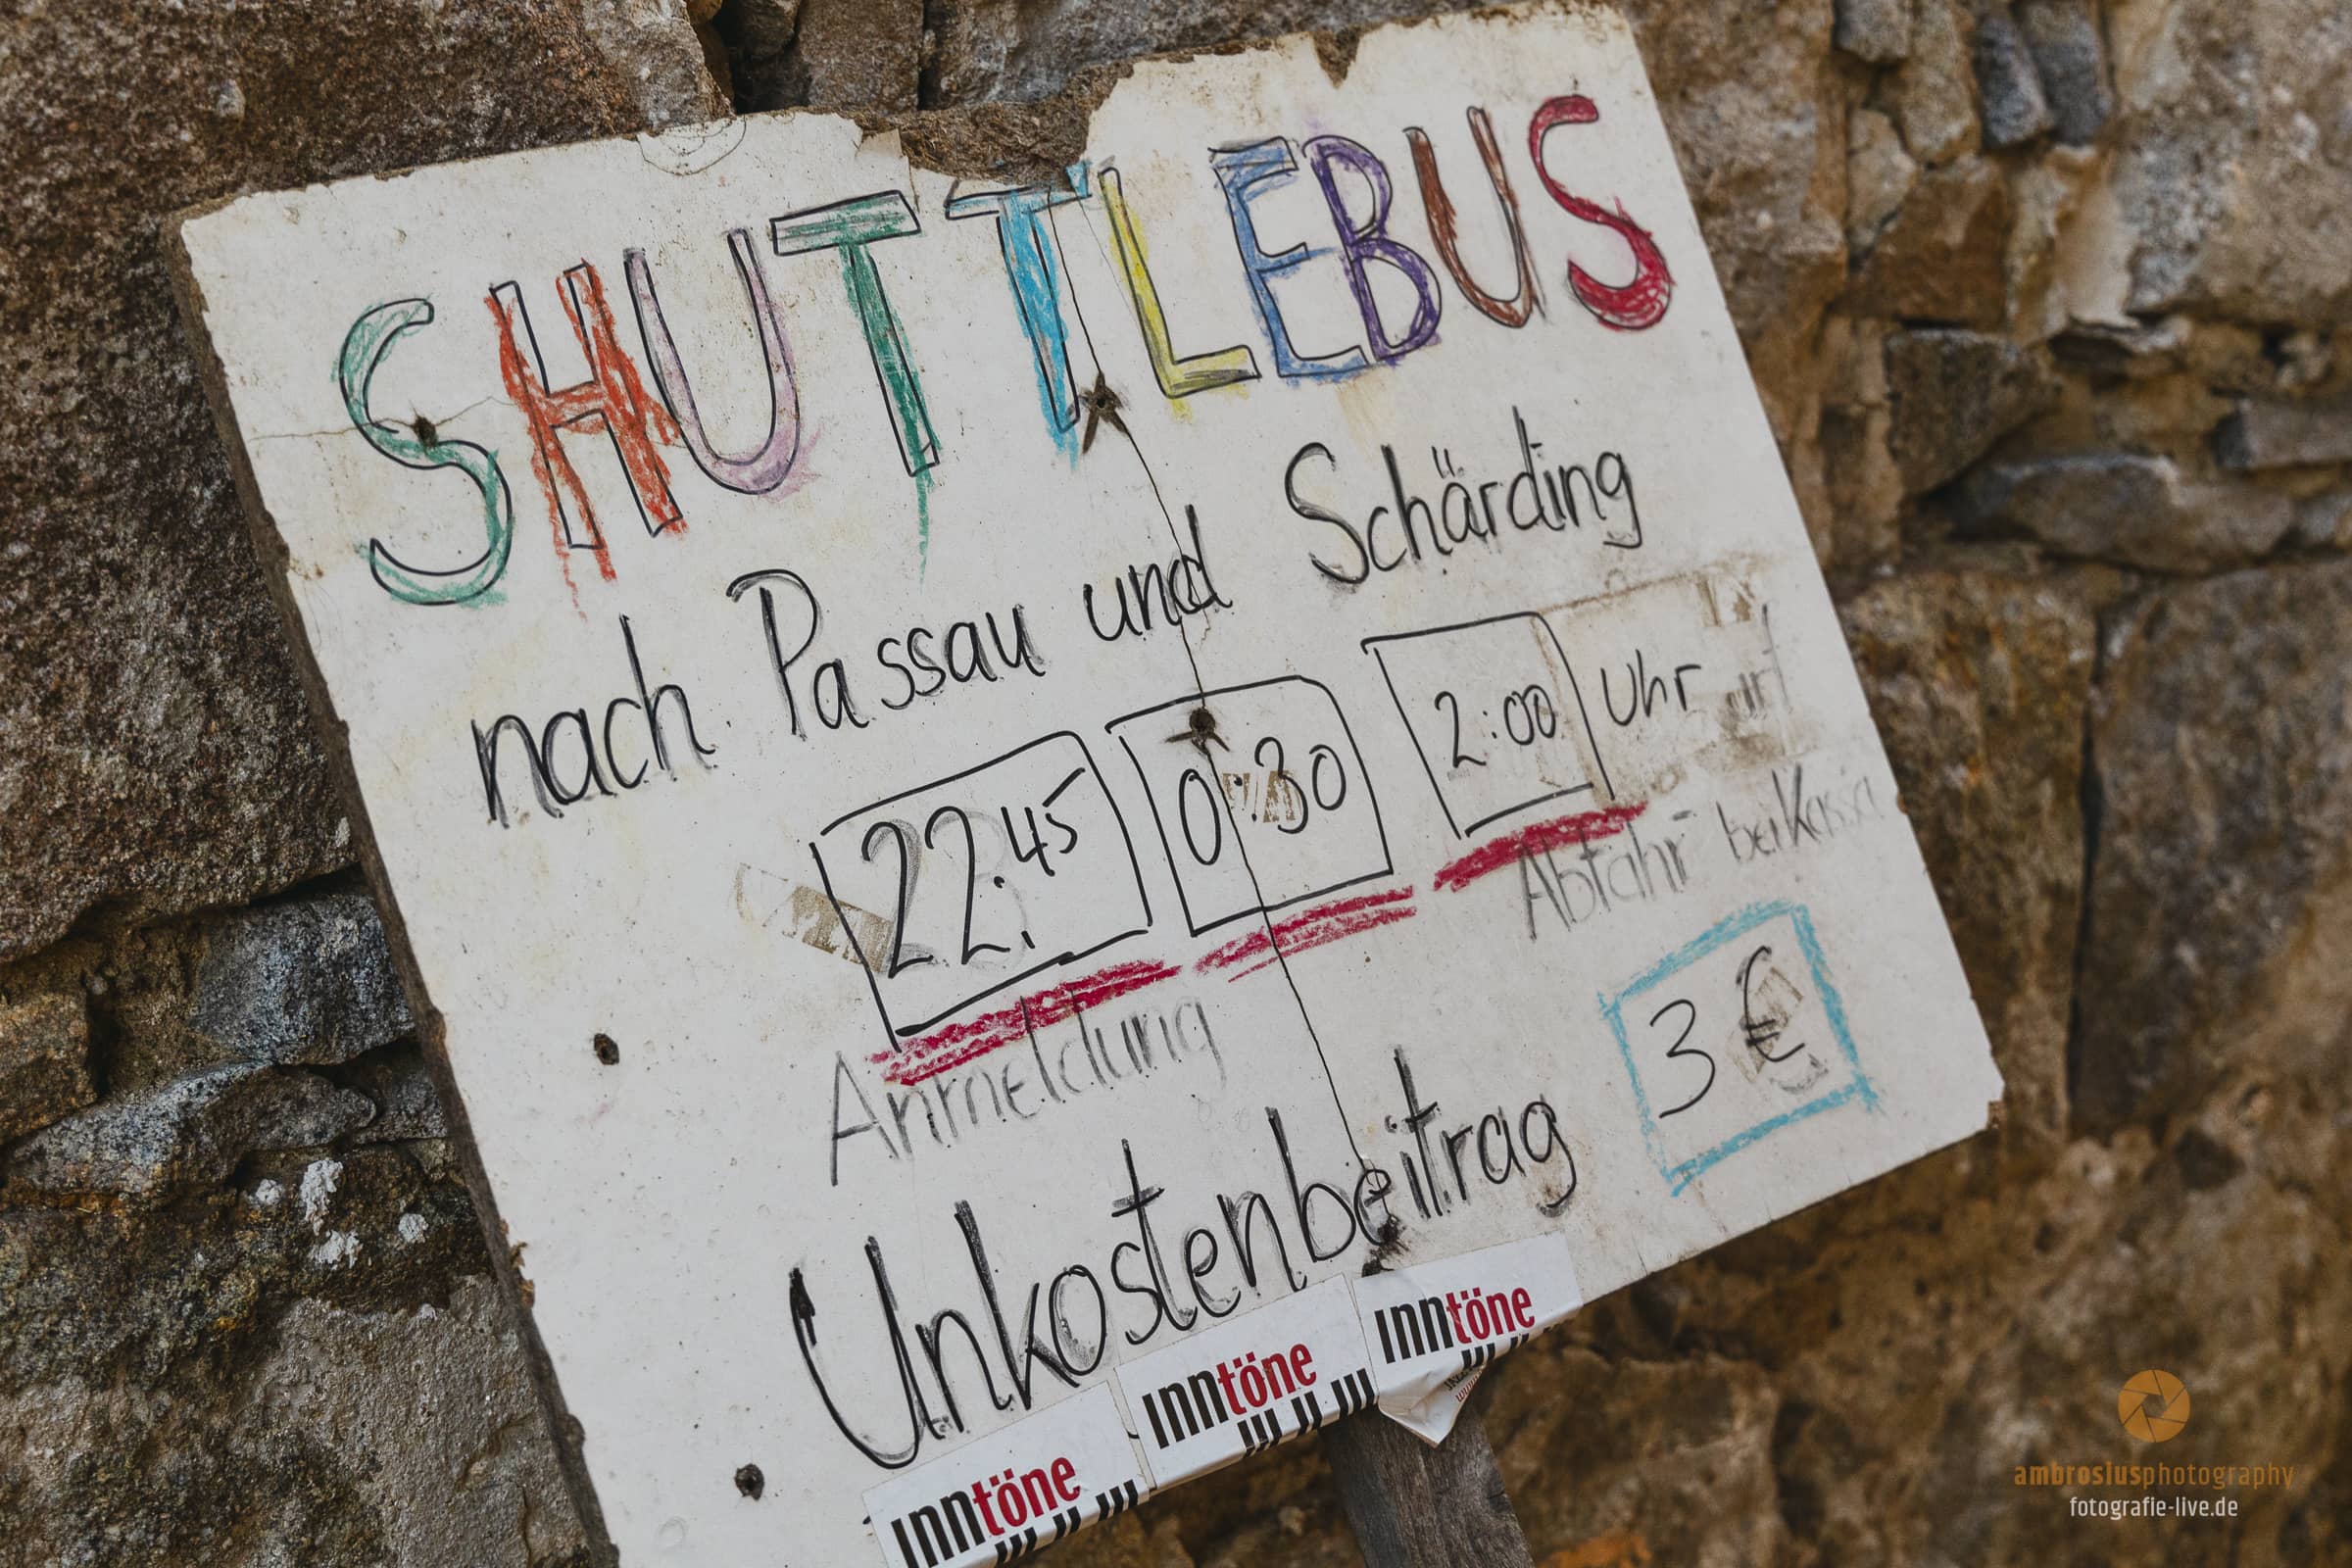 SHUTTLEBUS
nach Passau und Schärding
22.45 0:30 2:00 Uhr
Abfahrt bei Kassa
Anmeldung
Unkostenbeitrag 3 €
INNtöne
INNtöne
INNtöne
ambrosiusphotography
fotografie-live.de